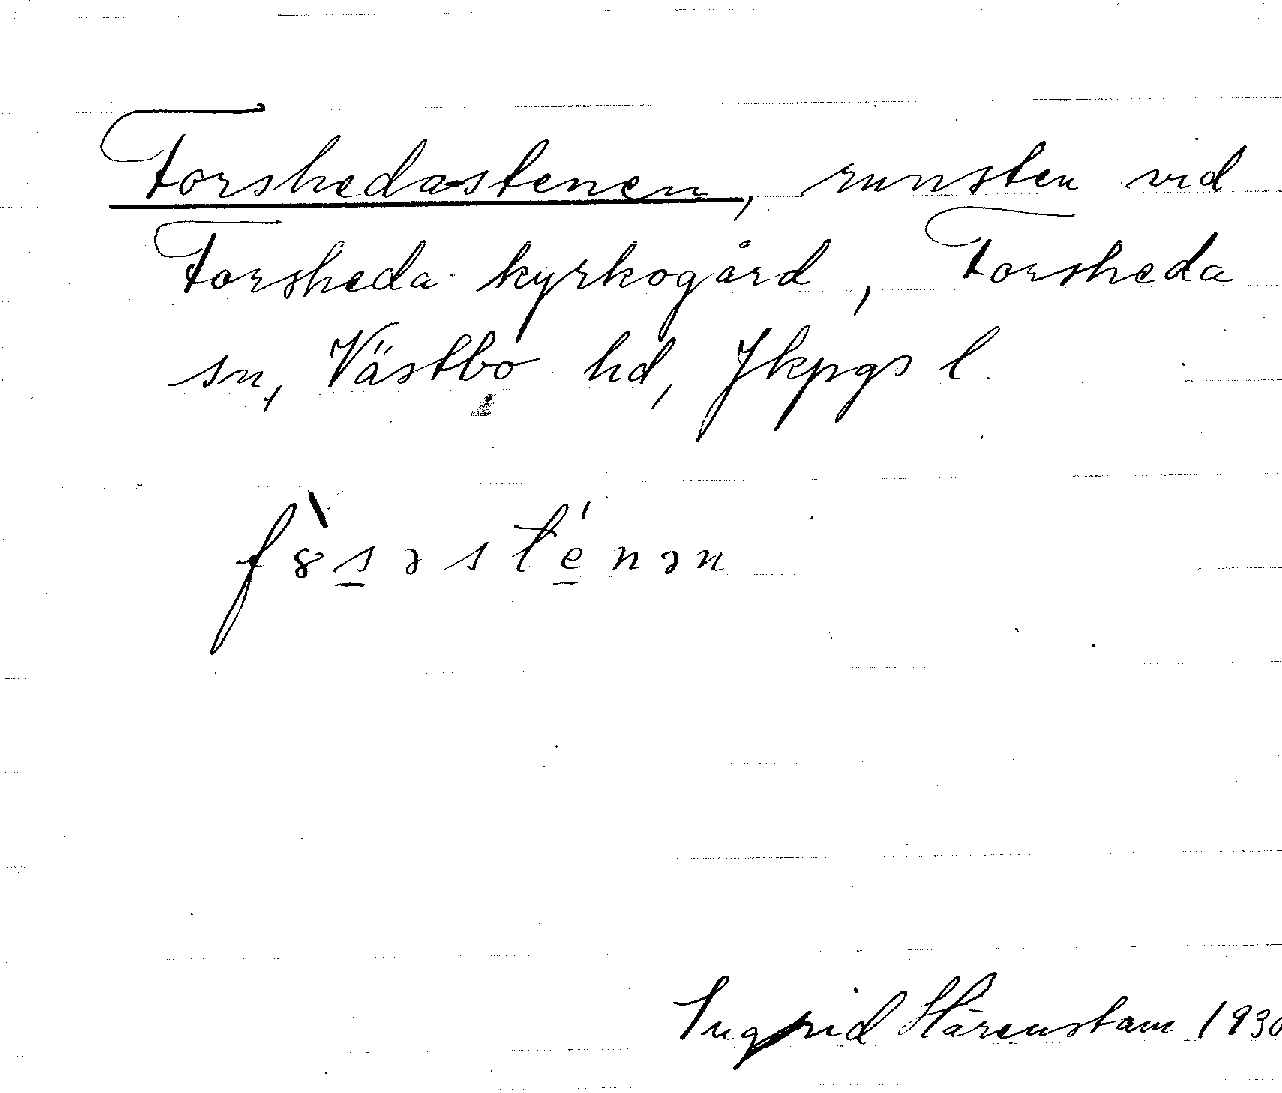 Forshedastenen, runsten vid
Forsheda kyrkogård, Forsheda
sn, Västbo hd, Jkpgs l.
fȣ̀s̲əsté̲nən
Ingrid Härenstam 1930